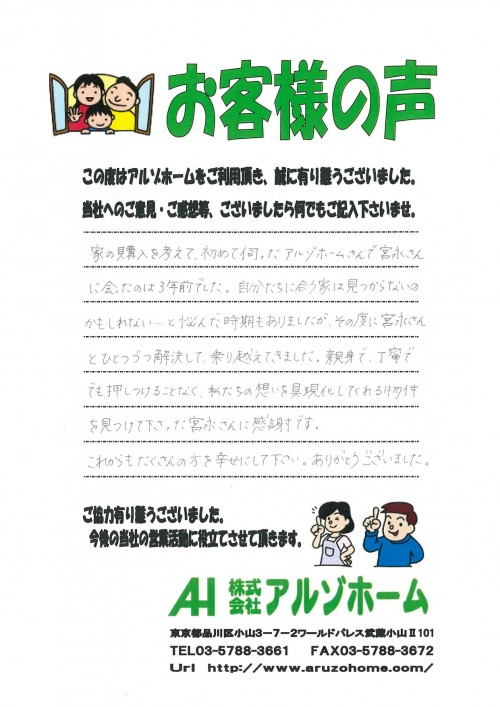 お客様の声
この度はアルゾホームをご利用頂き、誠に有り難うございました。
当社へのご意見・ご感想等、ございましたら何でもご記入下さいませ。
家の購入を考えて、初めて伺ったアルゾホームさんで宮永さん
に会ったのは3年前でした。自分たちに合う家は見つからないの
かもしれない…と悩んだ時期もありましたが、その度に宮永さん
とひとつづつ解決して、乗り越えてきました。親身で、丁寧で
でも押しつけることなく、私たちの想いを具現化してくれる物件
を見つけて下さった宮永さんに感謝です。
これからもたくさんの方を幸せにして下さい。ありがとうございました。
ご協力有り難うございました。
今後の当社の営業活動に役立てさせて頂きます。
AH 株式会社アルゾホーム
東京都品川区小山3-7-2ワールドパレス武蔵小山Ⅱ101
TEL03-5788-3661 FAX03-5788-3672
Url http://www.aruzohome.com/